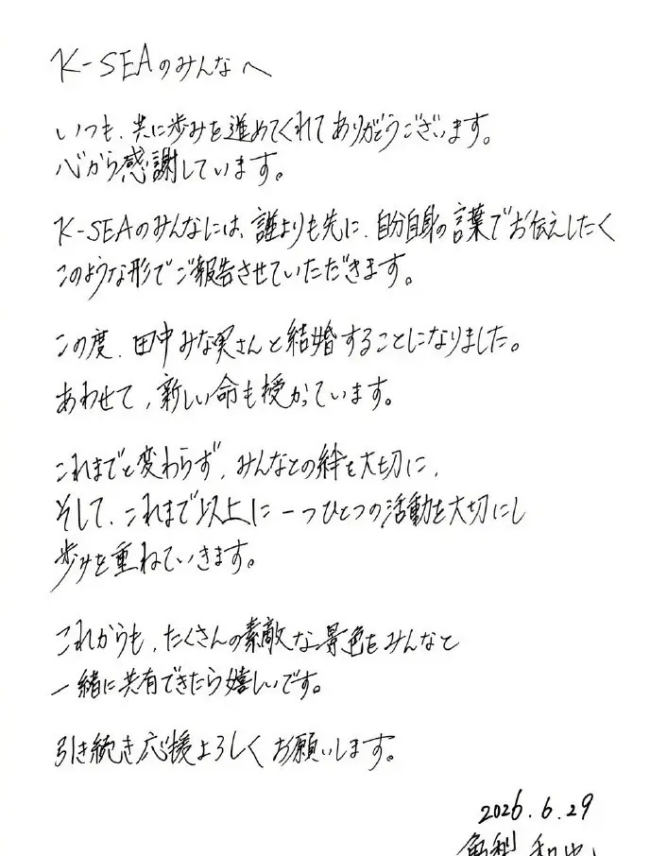 K-SEAのみんなへ
いつも、共に歩みを進めてくれてありがとうございます。
心から感謝しています。
K-SEAのみんなには、誰よりも先に、自分自身の言葉でお伝えしたく
このような形でご報告させていただきます。
この度、田中みな実さんと結婚することになりました。
あわせて、新しい命も授かっています。
これまでと変わらず、みんなとの絆を大切に、
そして、これまで以上に一つひとつの活動を大切にし
歩みを重ねていきます。
これからも、たくさんの素敵な景色をみんなと
一緒に共有できたら嬉しいです。
引き続き応援よろしくお願いします。
2026.6.29